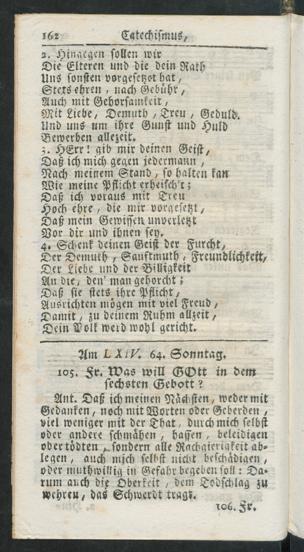 162 Catechismus,
2. Hingegen sollen wir
Die Elteren und die dein Rath
Uns sonsten vorgesetzt hat,
Stets ehren, nach Gebühr,
Auch mit Gehorsamkeit,
Mit Liebe, Demuth, Treu, Geduld.
Und uns um ihre Gunst und Huld
Bewerben allezeit.
3. HErr! gib mir deinen Geist,
Daß ich mich gegen jedermann,
Nach meinem Stand, so halten kan
Wie meine Pflicht erheisch't;
Daß ich voraus mit Treu
Hoch ehre, die mir vorgesetzt,
Daß mein Gewissen unverletzt
Vor dir und ihnen sey.
4. Schenk deinen Geist der Furcht,
Der Demuth, Sanftmuth, Freundlichkeit,
Der Liebe und der Billigkeit
An die, den' man gehorcht;
Daß sie stets ihre Pflicht,
Ausrichten mögen mit viel Freud,
Damit, zu deinem Ruhm allzeit,
Dein Volk werd wohl gericht.
Am LXIV. 64. Sonntag.
105. Fr. Was will GOtt in dem
sechsten Gebott?
Ant. Daß ich meinen Nächsten, weder mit
Gedanken, noch mit Worten oder Geberden,
viel weniger mit der That, durch mich selbst
oder andere schmähen, hassen, beleidigen
oder tödten, sondern alle Rachgierigkeit ab-
legen, auch mich selbst nicht beschädigen,
oder muthwillig in Gefahr begeben soll: Da-
rum auch die Oberkeit, dem Todschlag zu
wehren, das Schwerdt tragt.
106. Fr.